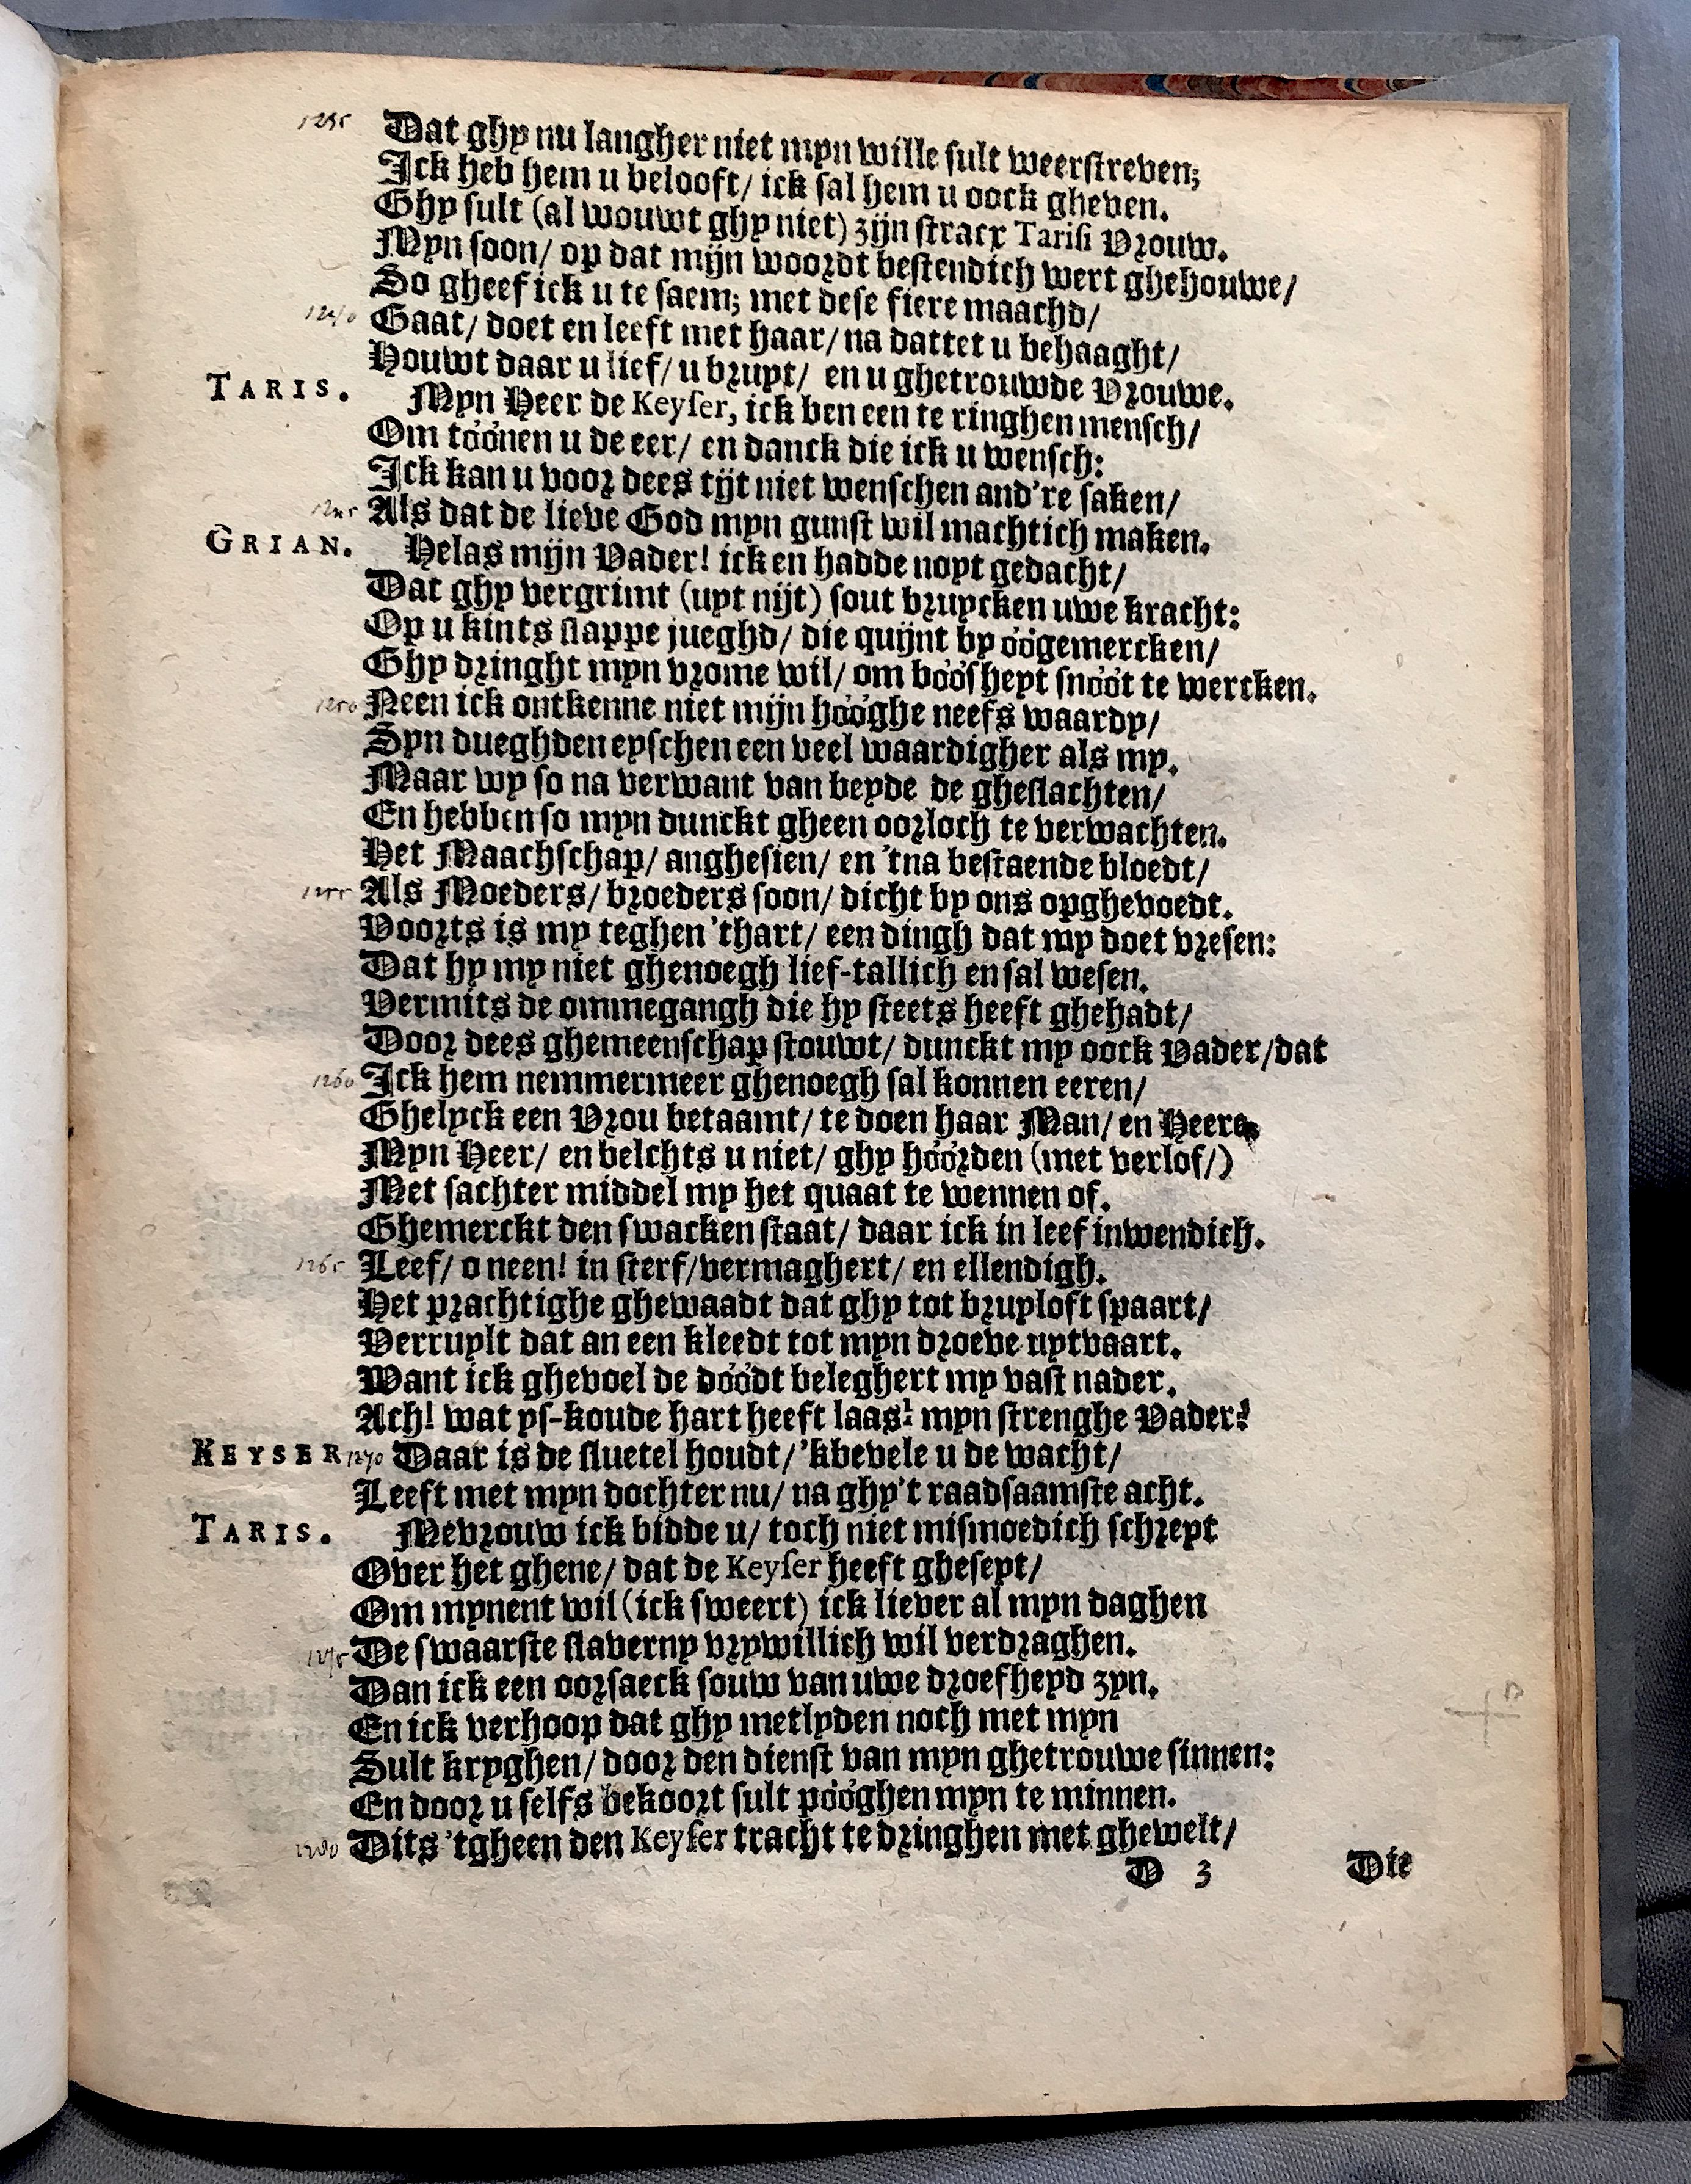 1235 Dat ghy nu langher niet myn wille sult weerstreven;
Ick heb hem u belooft/ ick sal hem u oock gheven.
Ghy sult (al wouwt ghy niet) zijn stracx Tarisi Vrouw.
Myn soon/ op dat mijn woordt bestendich wert ghehouwe/
So gheef ick u te saem; met dese fiere maachd/
1240 Gaat/ doet en leeft met haar/ na dattet u behaaght/
Houwt daar u lief/ u bruyt/ en u ghetrouwde Vrouwe.
TARIS. Myn Heer de Keyser, ick ben een te ringhen mensch/
Om tóónen u de eer/ en danck die ick u wensch:
Ick kan u voor dees tijt niet wenschen and're saken/
1245 Als dat de lieve God myn gunst wil machtich maken.
GRIAN. Helas mijn Vader! ick en hadde noyt gedacht/
Dat ghy vergrimt (uyt nijt) sout bruycken uwe kracht:
Op u kints slappe jueghd/ die quijnt by óógemercken/
Ghy dringht myn vrome wil/ om bóósheyt snóót te wercken.
1250 Neen ick ontkenne niet mijn hóóghe neefs waardy/
Syn dueghden eyschen een veel waardigher als my.
Maar wy so na verwant van beyde de gheslachten/
En hebben so myn dunckt gheen oorloch te verwachten.
Het Maachschap/ anghesien/ en 'tna bestaende bloedt/
1255 Als Moeders/ broeders soon/ dicht by ons opghevoedt.
Voorts is my teghen 'thart/ een dingh dat my doet vresen:
Dat hy my niet ghenoegh lief-tallich en sal wesen.
Vermits de ommegangh die hy steets heeft ghehadt/
Door dees ghemeenschap stouwt/ dunckt my oock Vader/dat
1260 Ick hem nemmermeer ghenoegh sal konnen eeren/
Ghelyck een Vrou betaamt/ te doen haar Man/ en Heere.
Myn Heer/ en belchts u niet/ ghy hóórden (met verlof/)
Met sachter middel my het quaat te wennen of.
Ghemerckt den swacken staat/ daar ick in leef inwendich.
1265 Leef/ o neen! in sterf/vermaghert/ en ellendigh.
Het prachtighe ghewaadt dat ghy tot bruyloft spaart/
Verruylt dat an een kleedt tot myn droeve uytvaart.
Want ick ghevoel de dóódt beleghert my vast nader.
Ach! wat ys-koude hart heeft laas! myn strenghe Vader?
KEYSER 1270 Daar is de sluetel houdt/ 'kbevele u de wacht/
Leeft met myn dochter nu/ na ghy't raadsaamste acht.
TARIS. Mevrouw ick bidde u/ toch niet mismoedich schreyt
Over het ghene/ dat de Keyser heeft gheseyt/
Om mynent wil (ick sweert) ick liever al myn daghen
1275 De swaarste slaverny vrywillich wil verdraghen.
Dan ick een oorsaeck souw van uwe droefheyd zyn.
En ick verhoop dat ghy metlyden noch met myn
Sult kryghen/ door den dienst van myn ghetrouwe sinnen:
En door u selfs bekoort sult póóghen myn te minnen.
1280 Dits 'tgheen den Keyser tracht te dringhen met ghewelt/
D 3 Die